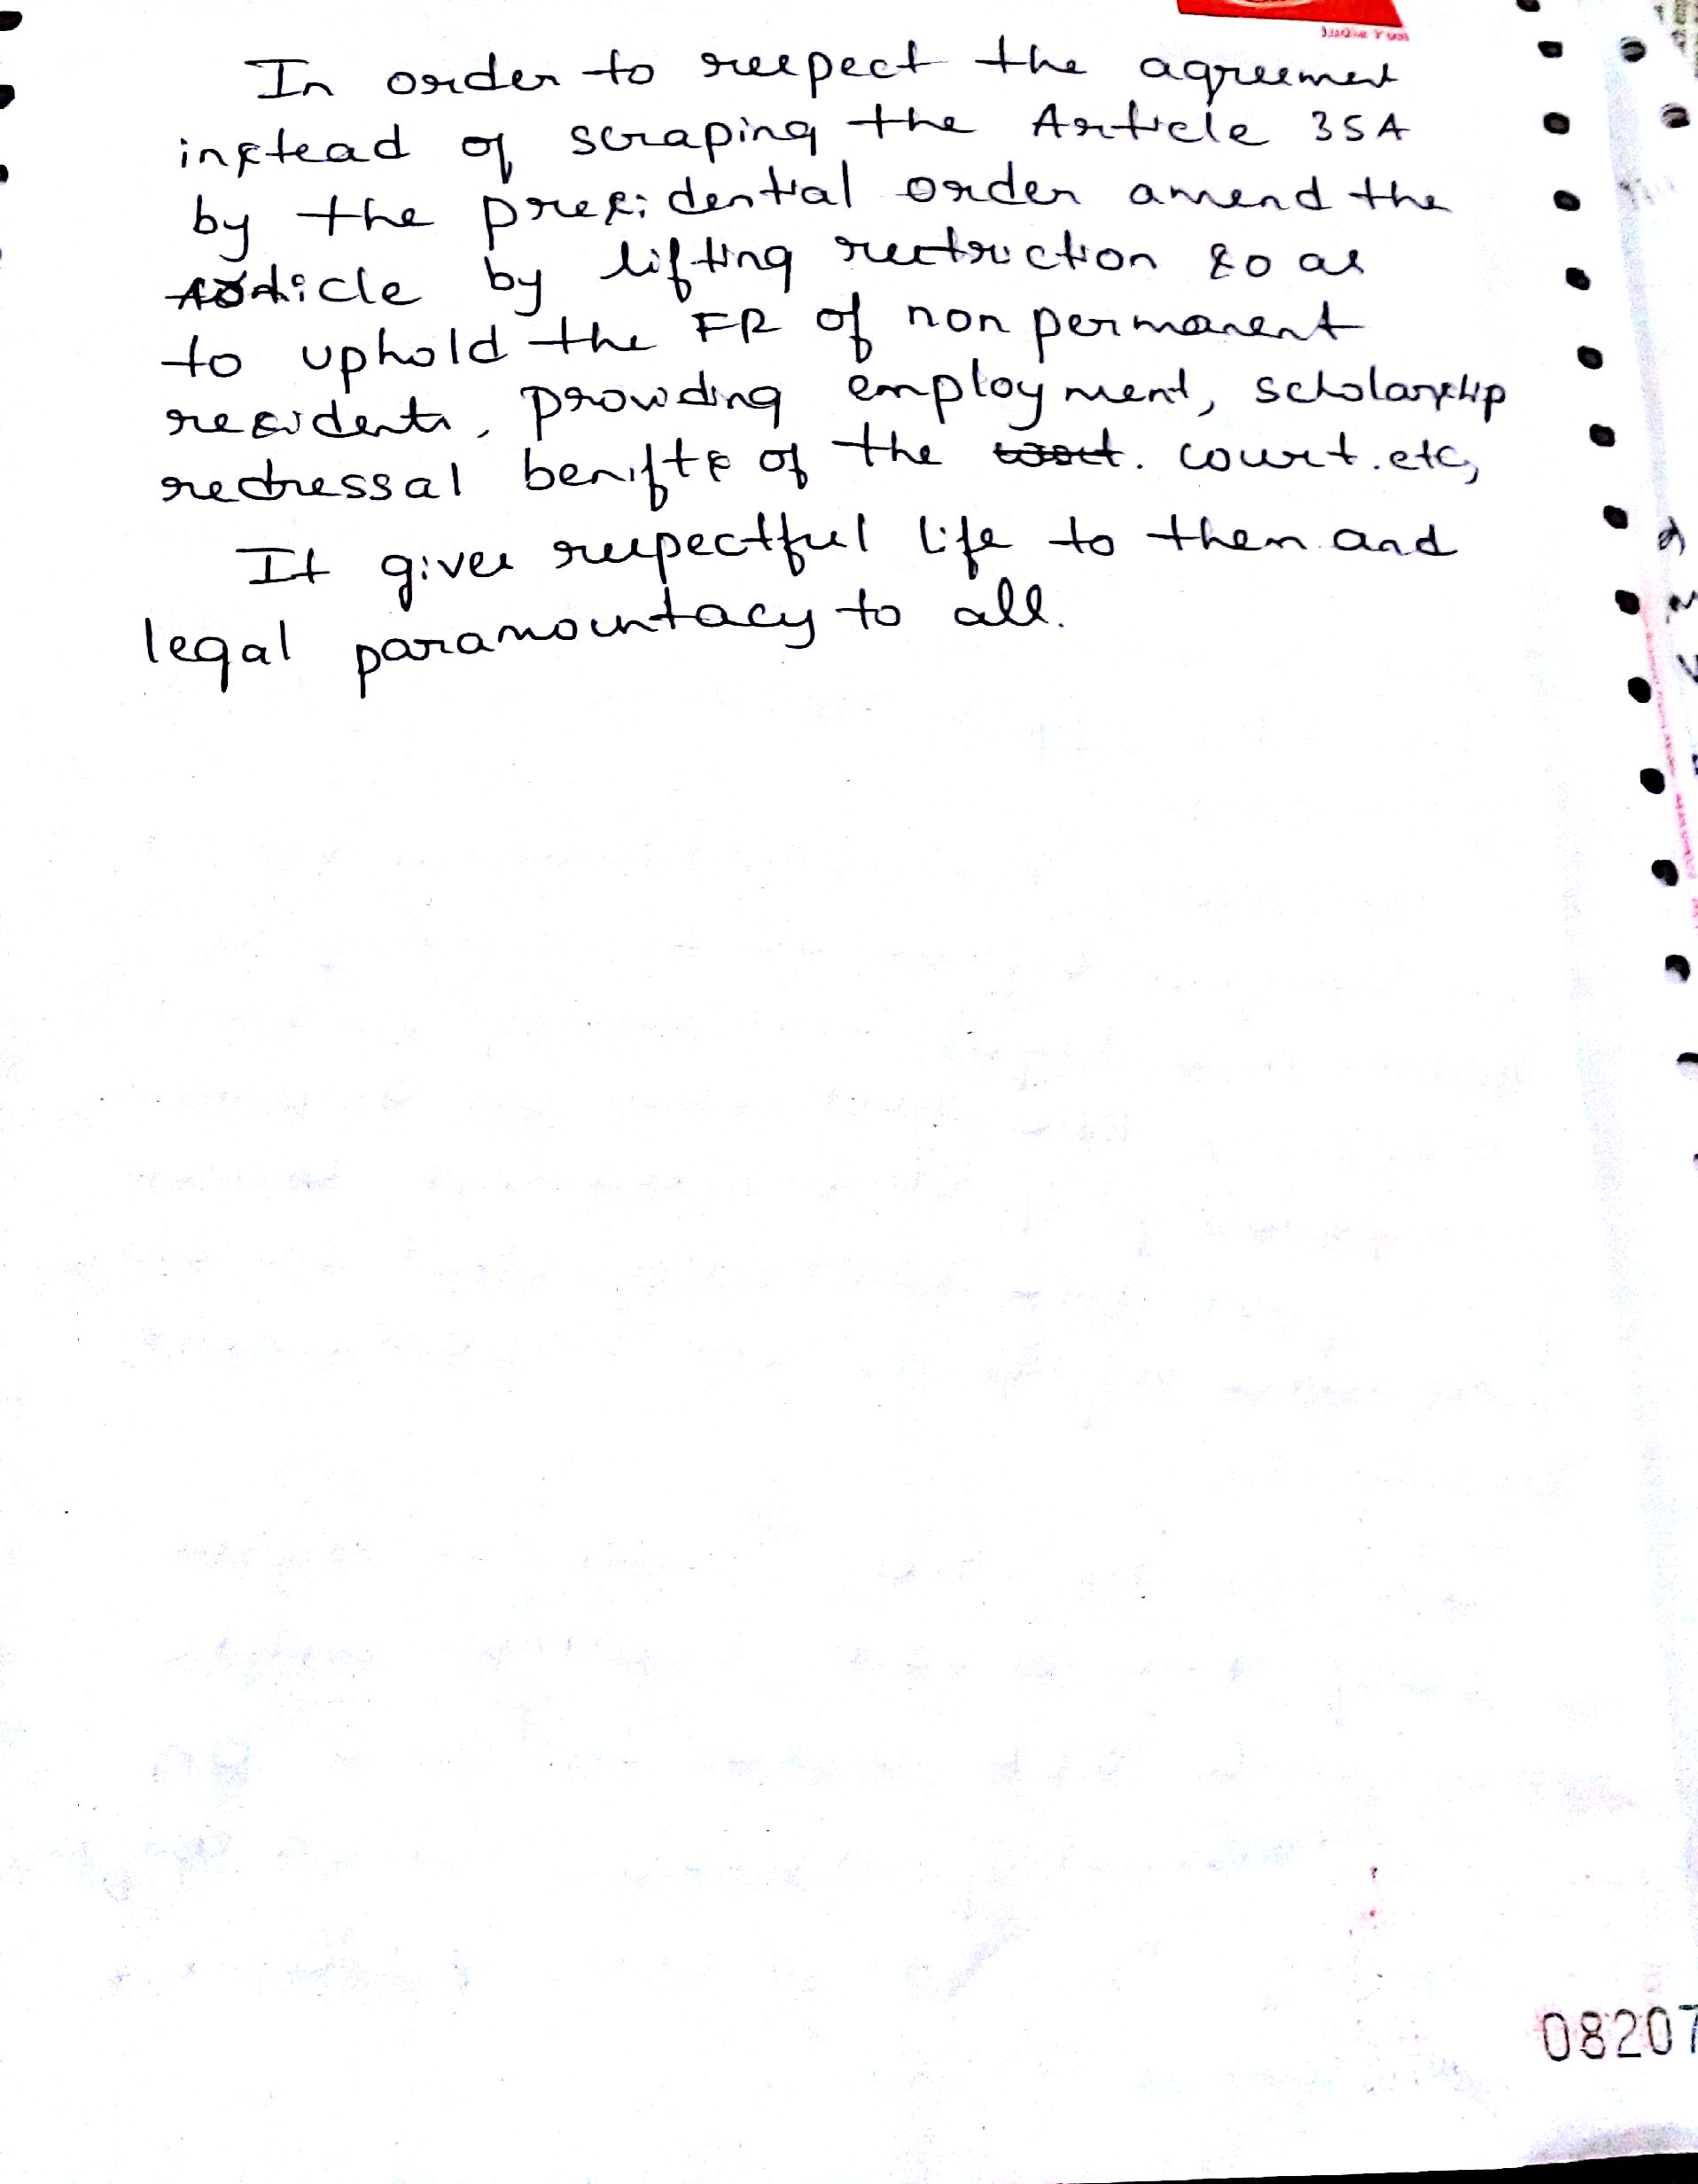 In order to respect the agreement
instead of scraping the Article 35A
by the presidential order amend the
Article by lifting restriction so as
to uphold the FR of non permanent
residents, providing employment, scholarship
redressal benifts of the court. etc,
It gives respectful life to them and
legal paramountacy to all.
08207